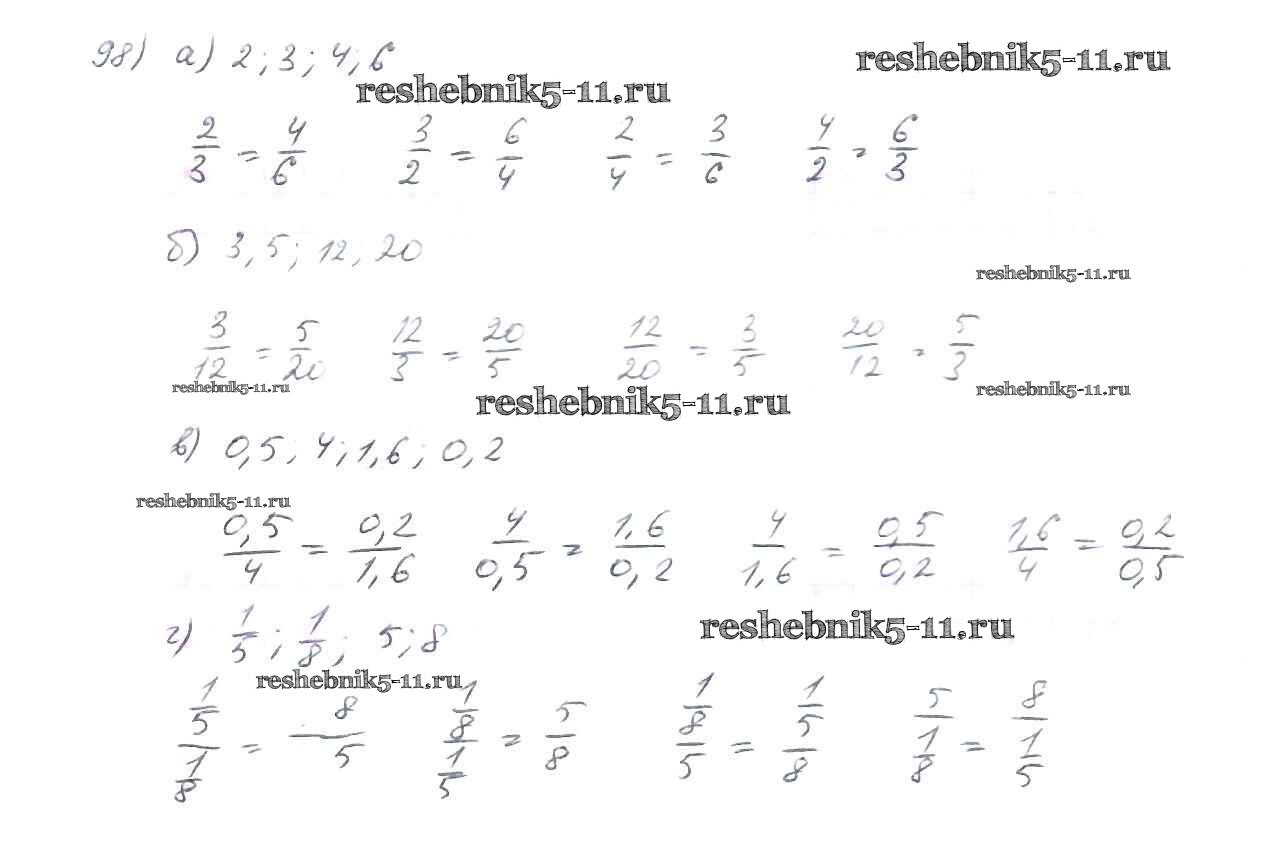 98) а) 2; 3; 4; 6
reshebnik5-11.ru
reshebnik5-11.ru
2/3 = 4/6 3/2 = 6/4 2/4 = 3/6 4/2 = 6/3
б) 3, 5; 12, 20
reshebnik5-11.ru
3/12 = 5/20 12/3 = 20/5 12/20 = 3/5 20/12 = 5/3
reshebnik5-11.ru
reshebnik5-11.ru
reshebnik5-11.ru
в) 0,5; 4; 1,6; 0,2
reshebnik5-11.ru
0,5/4 = 0,2/1,6 4/0,5 = 1,6/0,2 4/1,6 = 0,5/0,2 1,6/4 = 0,2/0,5
г) 1/5; 1/8; 5; 8
reshebnik5-11.ru
reshebnik5-11.ru
(1/5)/(1/8) = 8/5 (1/8)/(1/5) = 5/8 (1/8)/5 = (1/5)/8 5/(1/8) = 8/(1/5)